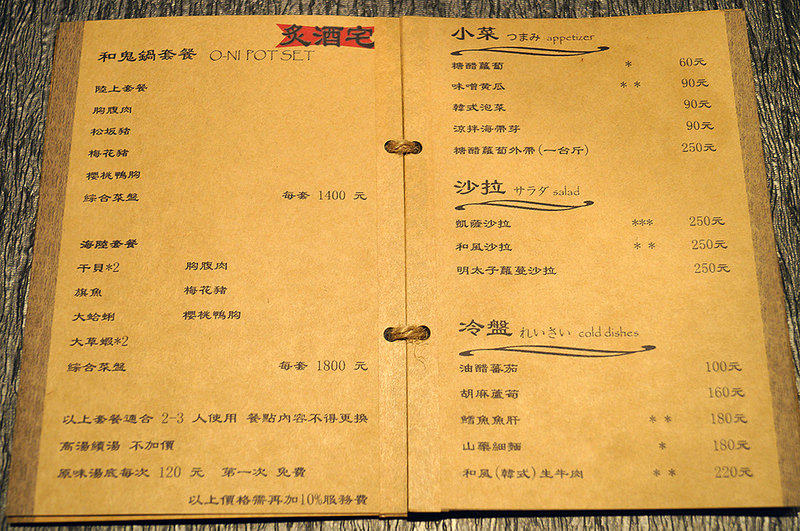 炙酒宅
和鬼鍋套餐 O-NI POT SET
陸上套餐
胸腹肉
松坂豬
梅花豬
櫻桃鴨胸
綜合菜盤 每套 1400 元
海陸套餐
干貝*2 胸腹肉
旗魚 梅花豬
大蛤蜊 櫻桃鴨胸
大草蝦*2
綜合菜盤 每套 1800 元
以上套餐適合 2-3 人使用 餐點內容不得更換
高湯續湯 不加價
原味湯底每次 120 元 第一次 免費
以上價格需再加10%服務費
小菜 つまみ appetizer
糖醋蘿蔔 * 60元
味噌黃瓜 ** 90元
韓式泡菜 90元
涼拌海帶芽 90元
糖醋蘿蔔外帶(一台斤) 250元
沙拉 サラダ salad
凱薩沙拉 *** 250元
和風沙拉 ** 250元
明太子蘿蔓沙拉 250元
冷盤 れいさい cold dishes
油醋蕃茄 100元
胡麻蘆筍 160元
鱈魚魚肝 ** 180元
山藥細麵 * 180元
和風(韓式)生牛肉 ** 220元